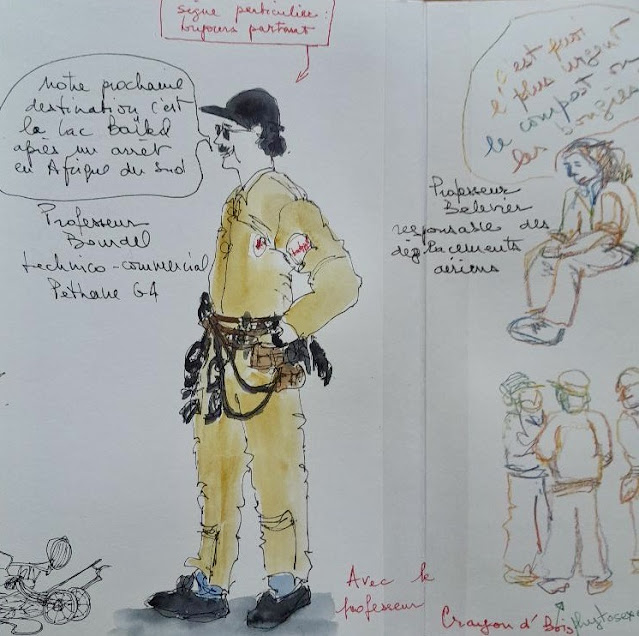 signe particulier :
toujours partant
notre prochaine
destination c'est
le lac Baïkal
après un arrêt
en Afrique du Sud
Professeur
Bourdel
technico-commercial
Péthane G4
c'est quoi
l' plus urgent
le compost ou
les bougies
Professeur
Belevier
responsable des
déplacements
aériens
Avec le
professeur
Crayon d'Bois